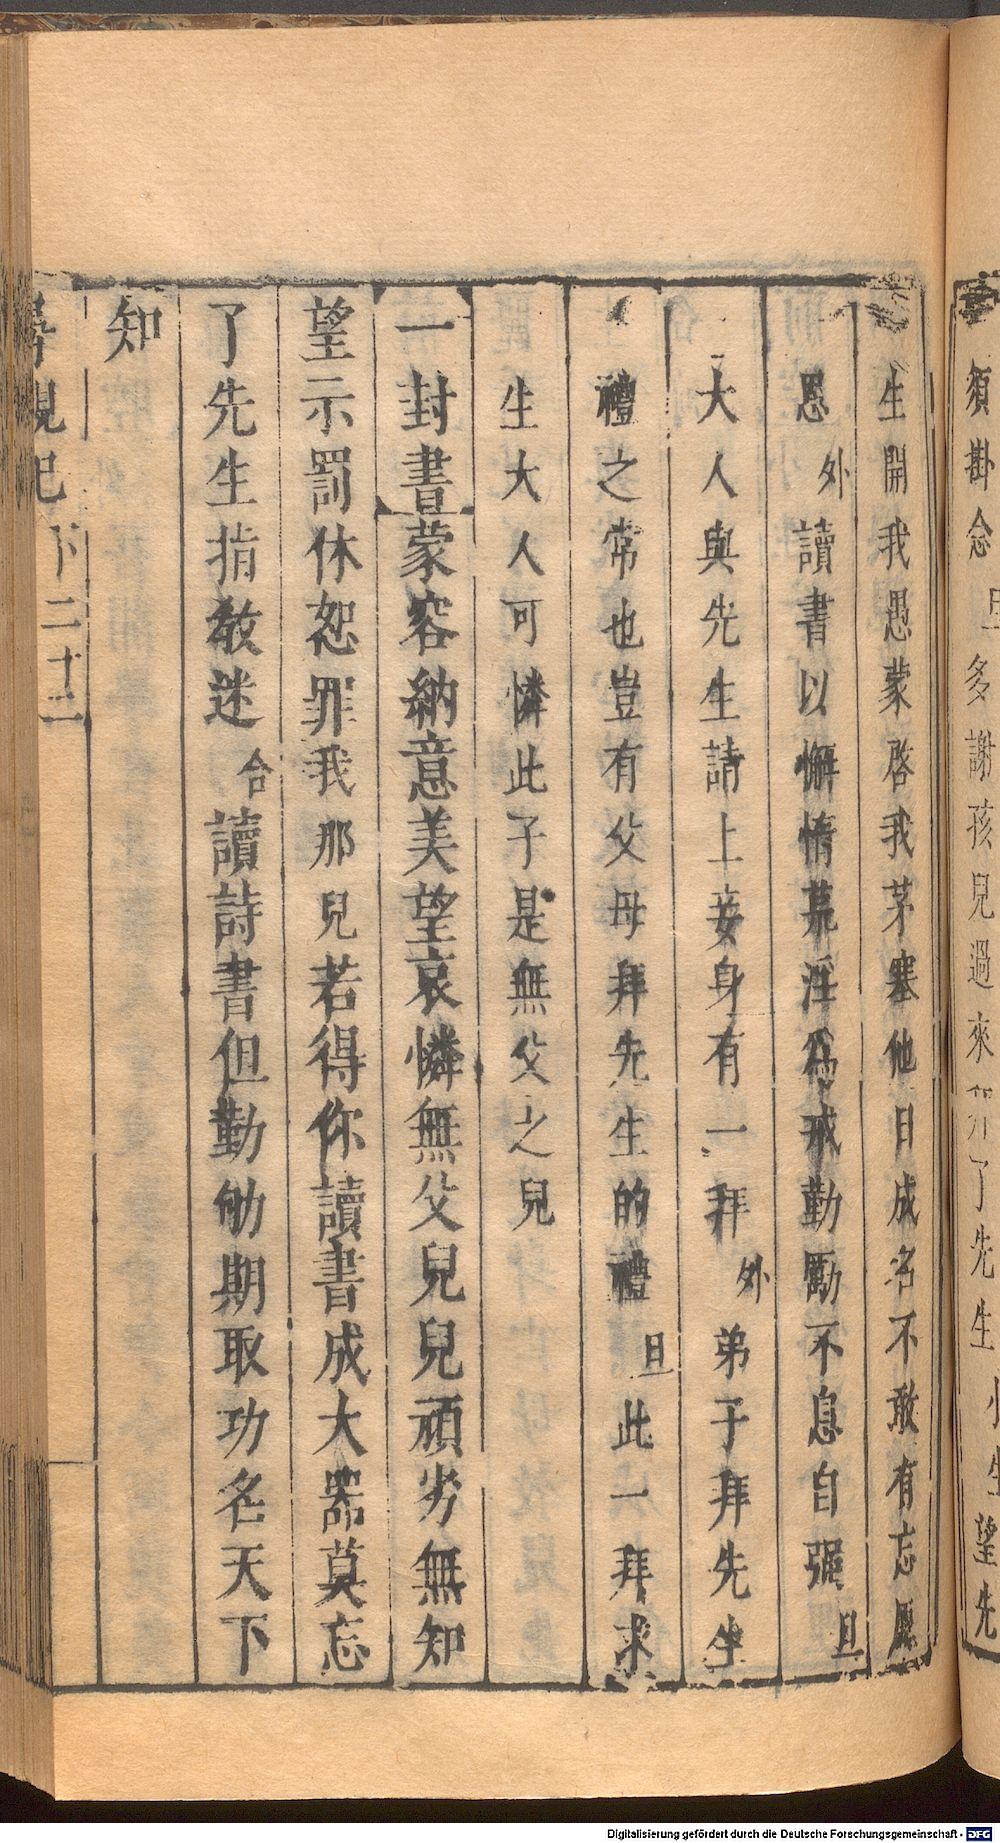 須掛念 旦 多謝孩兒過來 了先生 小生望先
生開我愚蒙啓我茅塞他日成名不敢有忘
恩 外 讀書以懈惰荒淫爲戒勤勵不息自强 旦
大人與先生請上妾身有一拜 外 弟子拜先生
禮之常也豈有父母拜先生的禮 旦 此一拜求
生大人可憐此子是無父之兒
一封書蒙容納意美望哀憐無父兒兒頑劣無知
望示罰休恕罪我那兒若得你讀書成大器莫忘
了先生指教迷 合 讀詩書但勤劬期取功名天下
知
尋親記 下 二十二
Digitalisierung gefördert durch die Deutsche Forschungsgemeinschaft - DFG